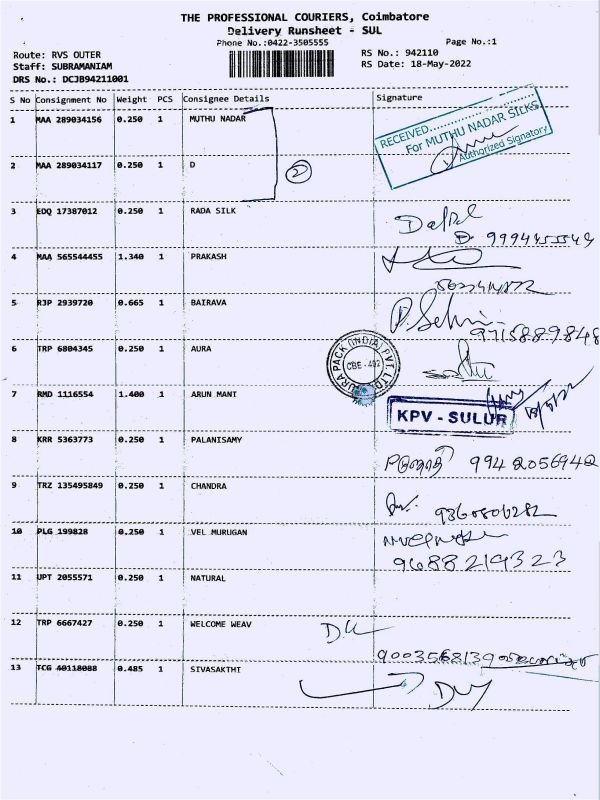 THE PROFESSIONAL COURIERS, Coimbatore
Delivery Runsheet - SUL
Phone No.:0422-3505555 Page No.:1
Route: RVS OUTER RS No.: 942110
Staff: SUBRAMANIAM RS Date: 18-May-2022
DRS No.: DCJB94211001
S No Consignment No Weight PCS Consignee Details Signature
1 MAA 289034156 0.250 1 MUTHU NADAR
RECEIVED..................
For MUTHU NADAR SILKS
Authorized Signatory
2 MAA 289034117 0.250 1 D
2
3 EDQ 17387012 0.250 1 RADA SILK
4 MAA 565544455 1.340 1 PRAKASH
5 RJP 2939720 0.665 1 BAIRAVA
9715889848
6 TRP 6804345 0.250 1 AURA
7 RMD 1116554 1.400 1 ARUN MANT
KPV - SULUR
8 KRR 5363773 0.250 1 PALANISAMY
994 2056942
9 TRZ 135495849 0.250 1 CHANDRA
10 PLG 199828 0.250 1 VEL MURUGAN
9688219323
11 UPT 2055571 0.250 1 NATURAL
12 TRP 6667427 0.250 1 WELCOME WEAV
9003568139
13 TCG 40118088 0.485 1 SIVASAKTHI